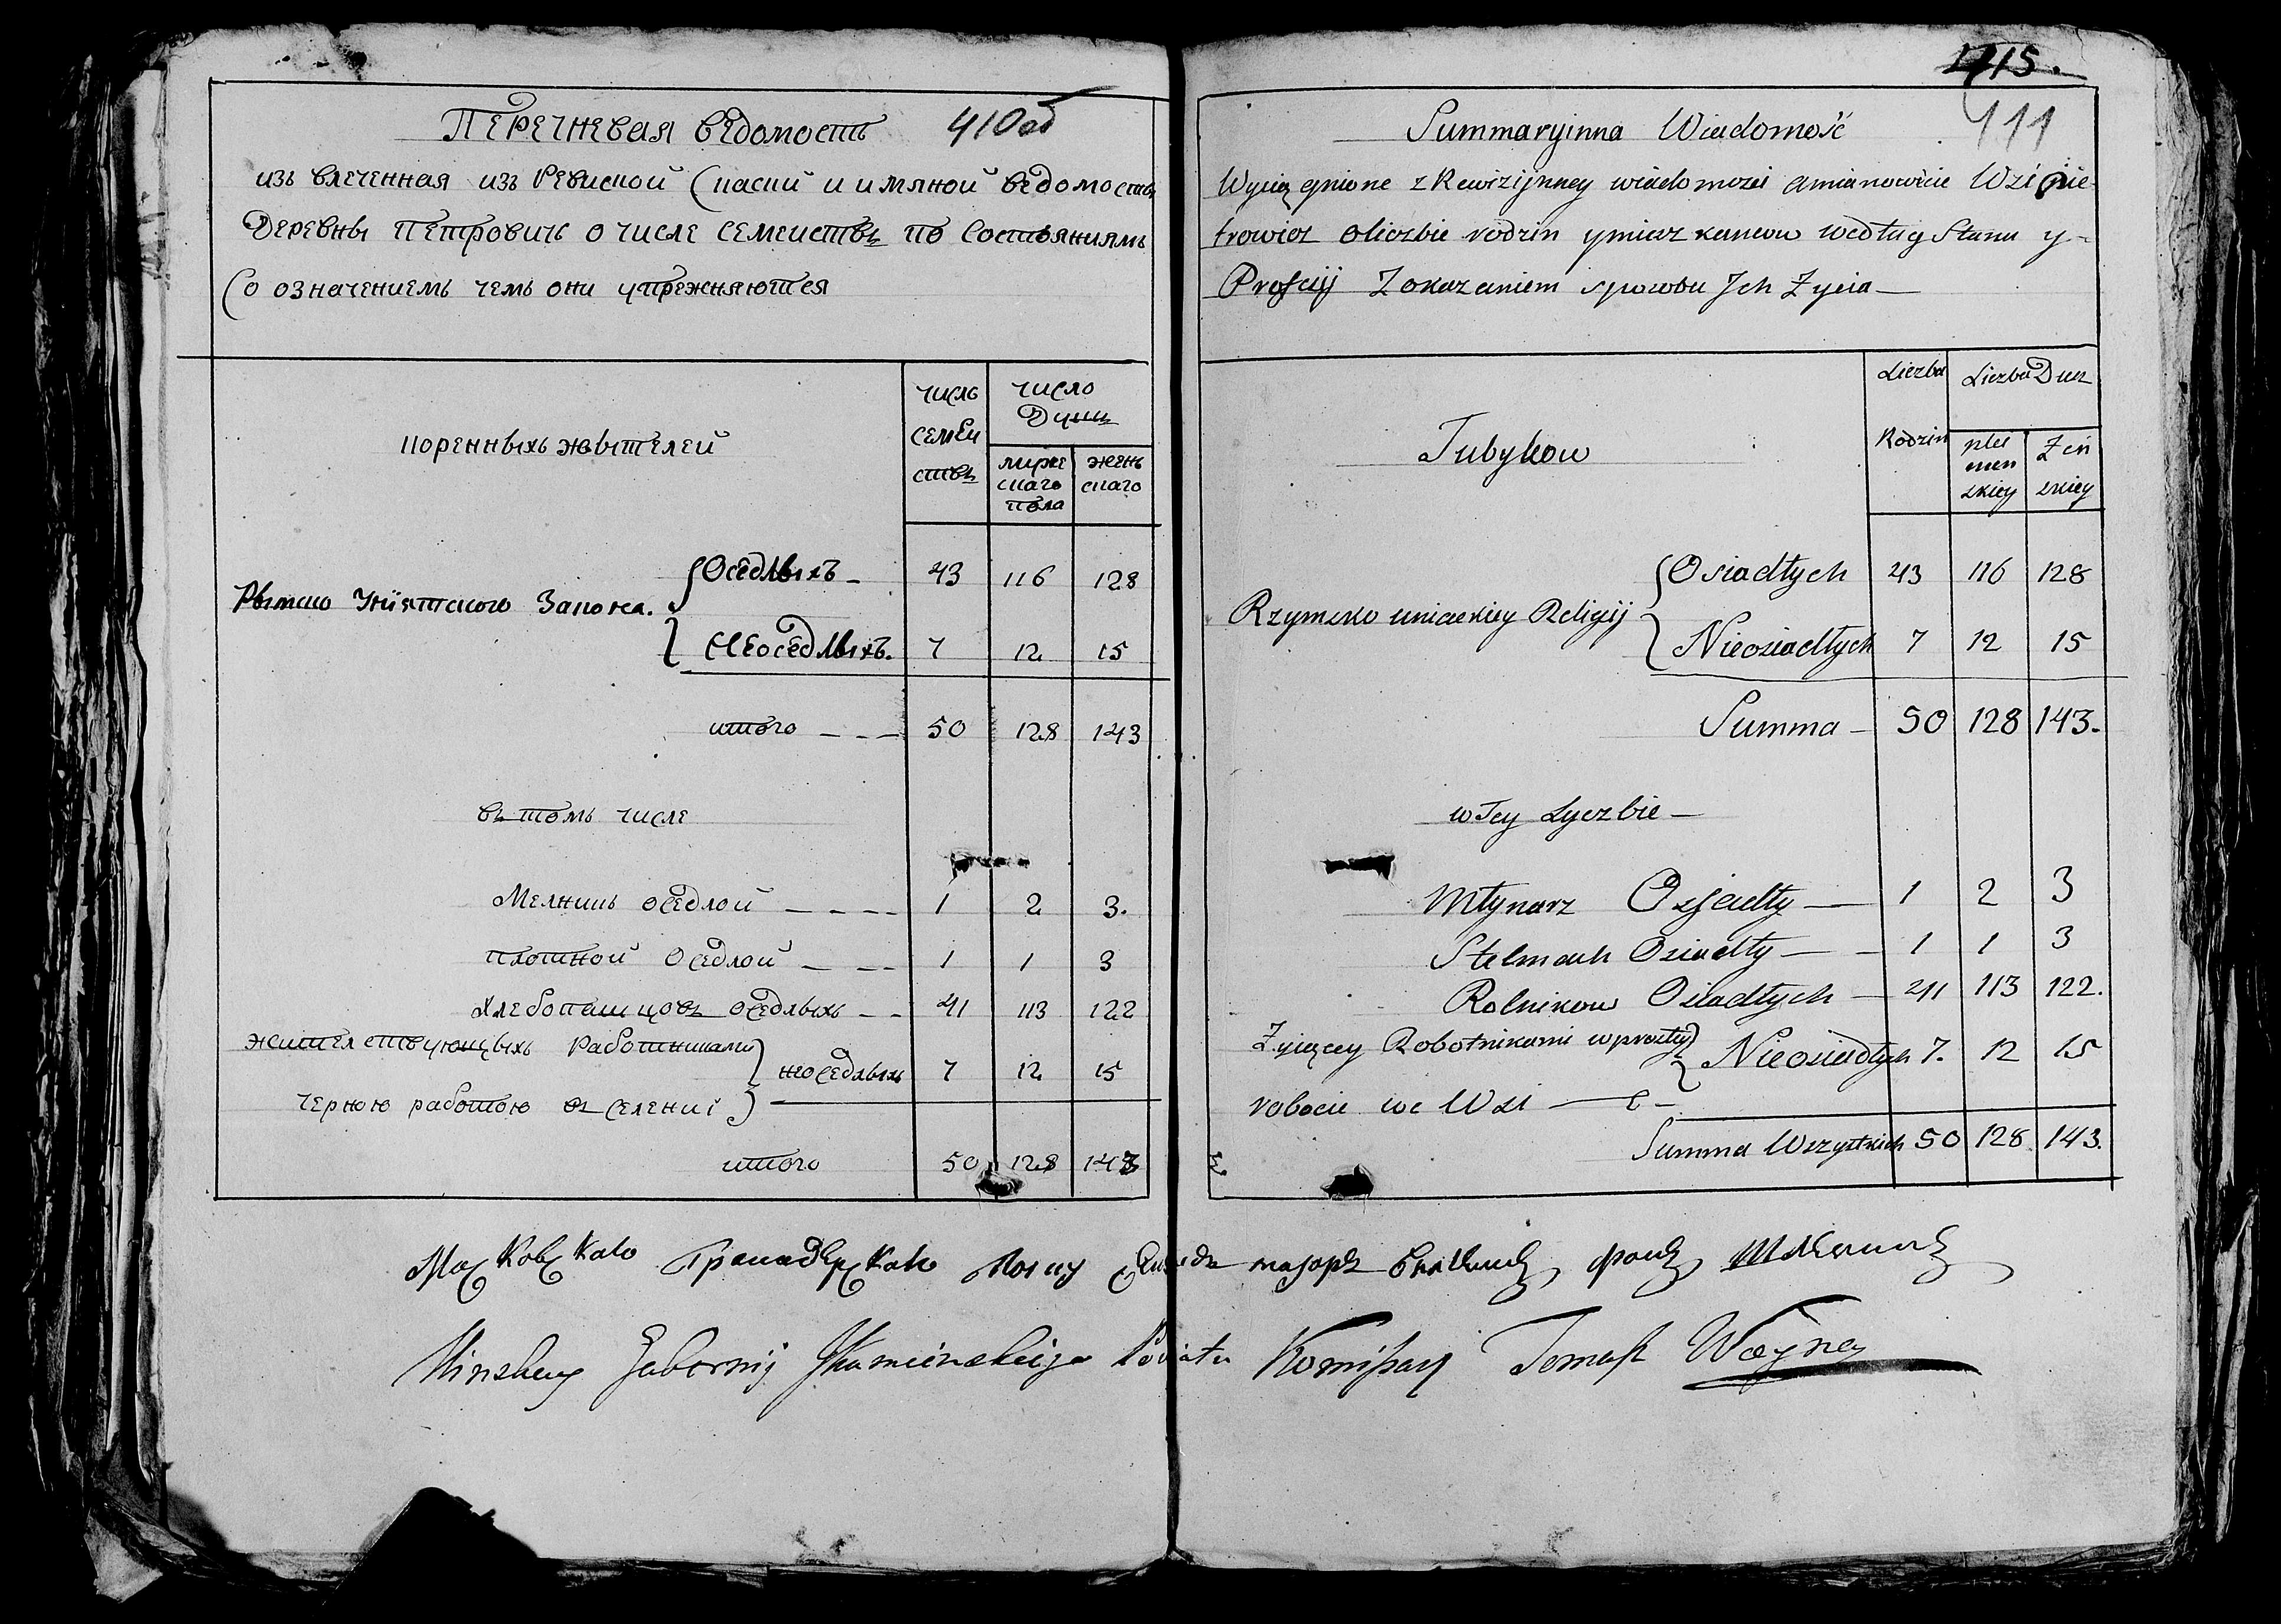 Перечневая ведомость 410об
изъ влеченная изъ Ревиской Скаски и имяной ведомости
Деревны Петровичъ о числе семеиствъ по Состояниямъ
Со означениемъ чемъ они упрежняются
коренныхъ жытелей
числъ семеи ствъ
число Душъ
муже скаго пола
женъ скаго
Рымско Униятского Закона.
Оседлыхъ 43 116 128
Неоседлыхъ. 7 12 15
итого 50 128 143
въ томъ числе
Мелникъ оседлой 1 2 3.
плотной Оседлой 1 1 3
хлебопашцовъ оседлыхъ 41 113 122
жителствующыхъ работниками
неоседлыхъ 7 12 15
черною работою въ селении
итого 50 128 143
1415.
411
Summaryinna Wiadomość
Wyciągnione z Rewizijnney wiadomości amianowicie Wzi pie
trowicz oliczbie rodzin ymieszkancow według Stanu y
Profesij Zokazaniem sposobu Jch Życia
Tubylcow
Liczba Rodzin
Liczba Dusz
plci men skiey
Żeń skiey
Rzymsko uniackiey Religij
Osiadłych 43 116 128
Nieosiadłych 7 12 15
Summa 50 128 143.
wTey Lyczbie
Młynarz Osjadły 1 2 3
Stelmach Osiadły 1 1 3
Rolnikow Osiadłych 41 113 122.
Żyiącey Robotnikami wprostey
Nieosiadłych 7. 12 15
robocie we Wsi
Summa Wszystkich 50 128 143.
Московскаго Гренадерскаго полку маіоръ фонъ
Minskey Gubernij Jhumieńskiego Powiatu Komißarz Tomaß